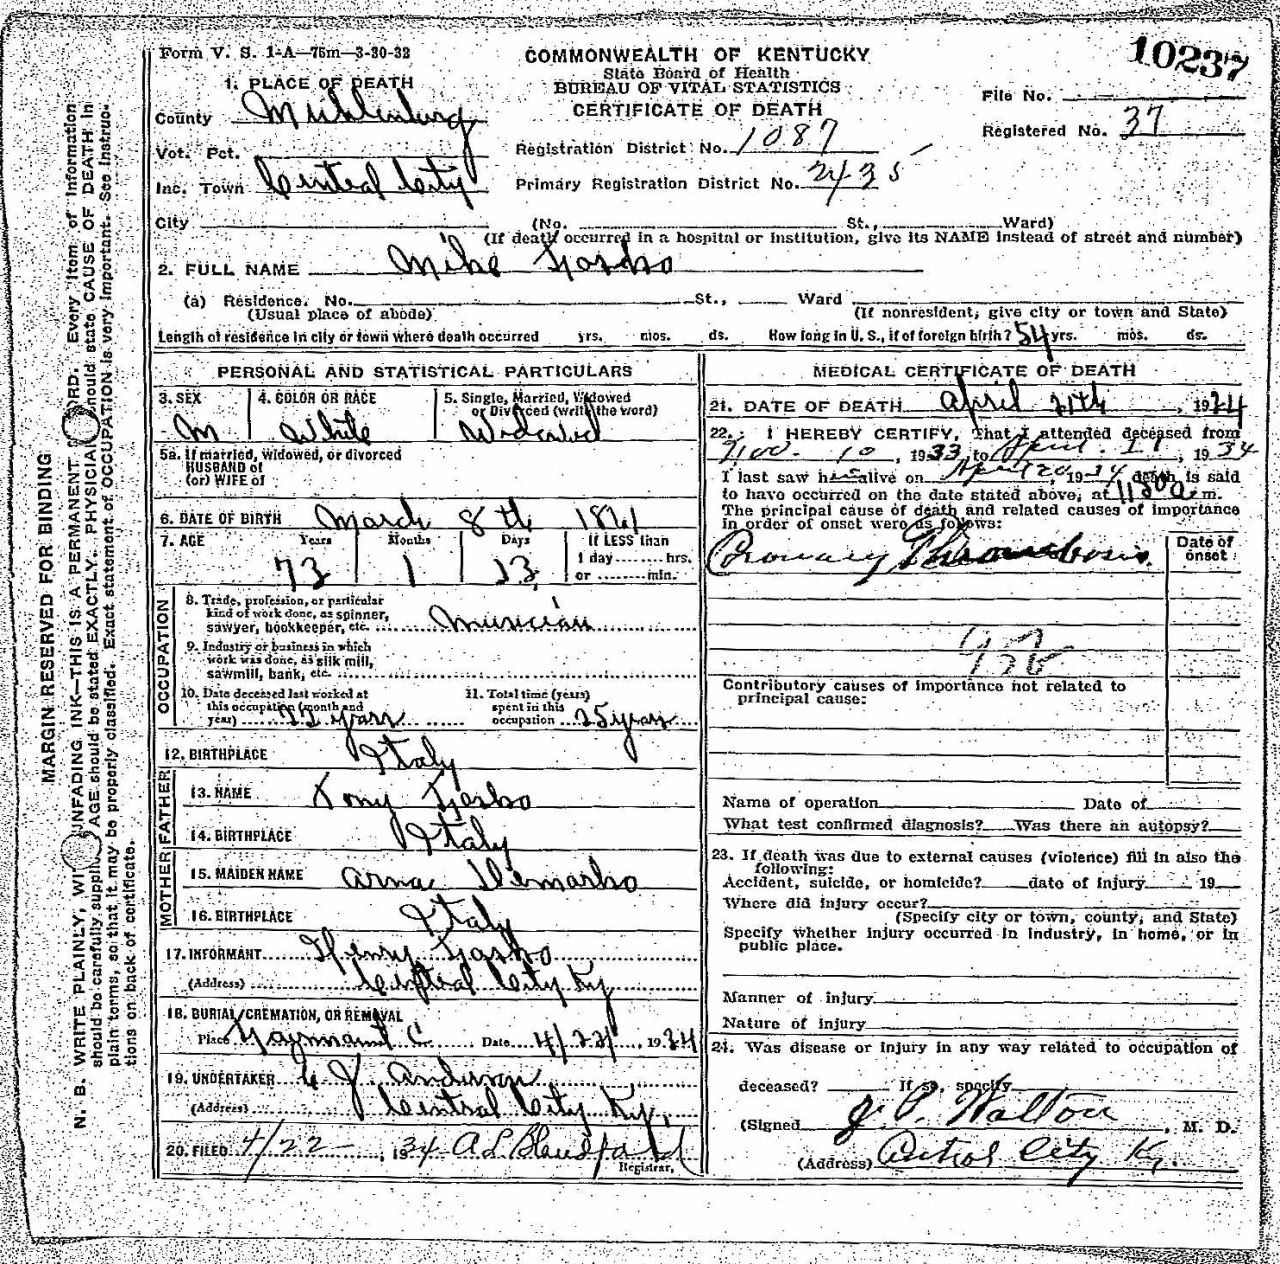 Form V. S. 1-A—75m—3-30-32
COMMONWEALTH OF KENTUCKY
State Board of Health
BUREAU OF VITAL STATISTICS
CERTIFICATE OF DEATH
10237
File No.
Registered No. 37
1. PLACE OF DEATH
County Muhlenburg
Vot. Pct.
Inc. Town Central City
Registration District No. 1087
Primary Registration District No. 2435
City (No. St., Ward)
(If death occurred in a hospital or institution, give its NAME instead of street and number)
2. FULL NAME Mike
(a) Residence. No. St., Ward
(Usual place of abode) (If nonresident, give city or town and State)
Length of residence in city or town where death occurred yrs. mos. ds. How long in U. S., if of foreign birth? 54 yrs. mos. ds.
PERSONAL AND STATISTICAL PARTICULARS
3. SEX 4. COLOR OR RACE 5. Single, Married, Widowed or Divorced (write the word)
M White Widowed
5a. If married, widowed, or divorced
HUSBAND of
(or) WIFE of
6. DATE OF BIRTH March 8th 1861
7. AGE Years Months Days If LESS than
1 day hrs.
or min.
73 1 13
OCCUPATION
8. Trade, profession, or particular
kind of work done, as spinner,
sawyer, bookkeeper, etc. Musician
9. Industry or business in which
work was done, as silk mill,
sawmill, bank, etc.
10. Date deceased last worked at
this occupation (month and
year) years
11. Total time (years)
spent in this
occupation 25 years
12. BIRTHPLACE Italy
FATHER
13. NAME Tony
14. BIRTHPLACE Italy
MOTHER
15. MAIDEN NAME
16. BIRTHPLACE Italy
17. INFORMANT Henry
(Address) Central City Ky
18. BURIAL, CREMATION, OR REMOVAL
Place Date 4/22, 1934
19. UNDERTAKER Anderson
(Address) Central City Ky.
20. FILED 4/22, 1934 A L Blandford
Registrar,
MEDICAL CERTIFICATE OF DEATH
21. DATE OF DEATH April 21th, 1934
22. I HEREBY CERTIFY, That I attended deceased from
Nov. 10, 1933, to April 21, 1934
I last saw him alive on April 20, 1934 death is said
to have occurred on the date stated above, at m.
The principal cause of death and related causes of importance
in order of onset were as follows:
Date of
onset
Coronary Thrombosis
Contributory causes of importance not related to
principal cause:
Name of operation Date of
What test confirmed diagnosis? Was there an autopsy?
23. If death was due to external causes (violence) fill in also the
following:
Accident, suicide, or homicide? date of injury 19
Where did injury occur?
(Specify city or town, county, and State)
Specify whether injury occurred in industry, in home, or in
public place.
Manner of injury
Nature of injury
24. Was disease or injury in any way related to occupation of
deceased? If so, specify
(Signed J. P. Walton, M. D.
(Address) Central City Ky.
MARGIN RESERVED FOR BINDING
N. B. WRITE PLAINLY, WI UNFADING INK—THIS IS A PERMANENT RD. Every item of information
should be carefully suppli AGE should be stated EXACTLY. PHYSICIAN hould state CAUSE OF DEATH in
plain terms, so that it may be properly classified. Exact statement of OCCUPATION is very important. See instruc-
tions on back of certificate.